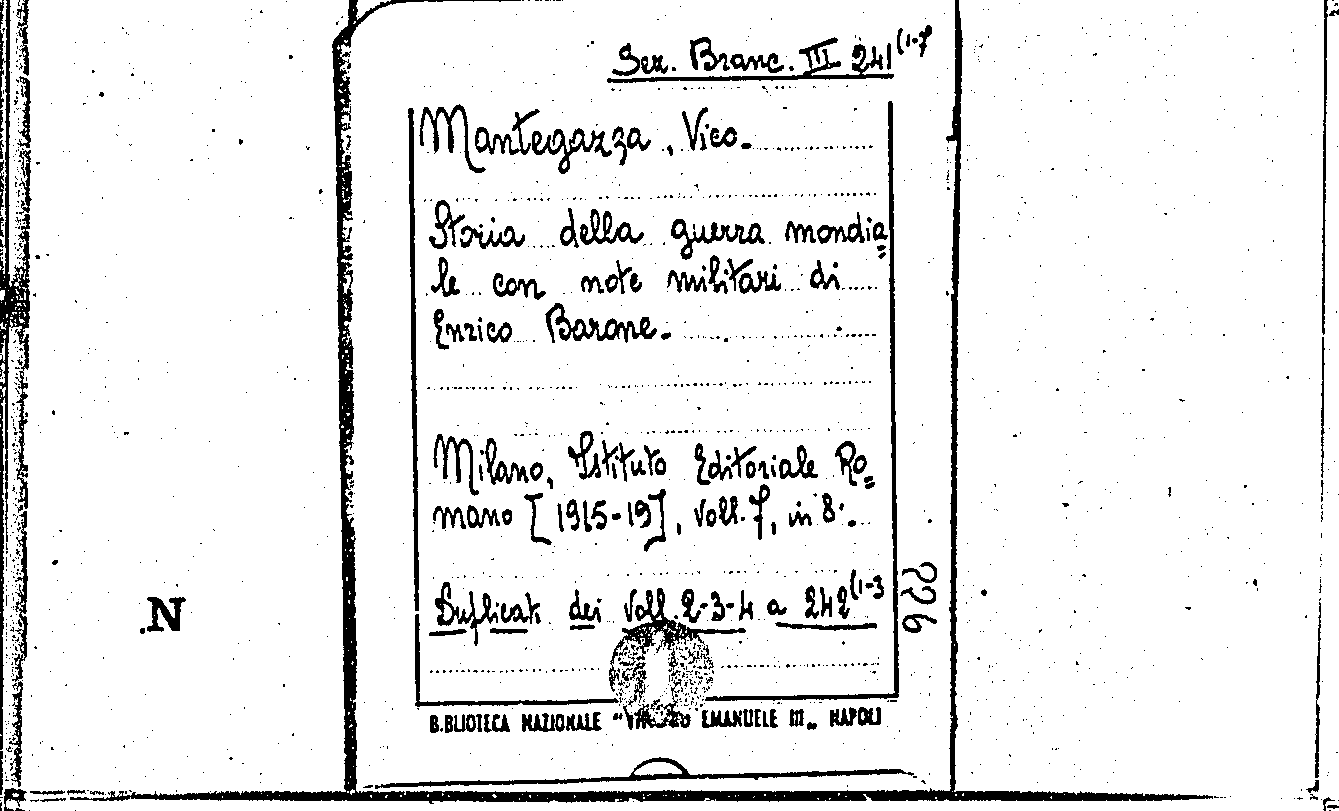 Sez. Branc. III 241(1-7
Mantegazza, Vico.
Storia della guerra mondia=
le con note militari di
Enrico Barone.
Milano, Istituto Editoriale Ro=
mano [1915-19], voll. 7, in 8°.
Duplicati dei voll. 2-3-4 a 242(1-3
226
N
B.BLIOTECA NAZIONALE "VITTORIO EMANUELE III„ NAPOLI